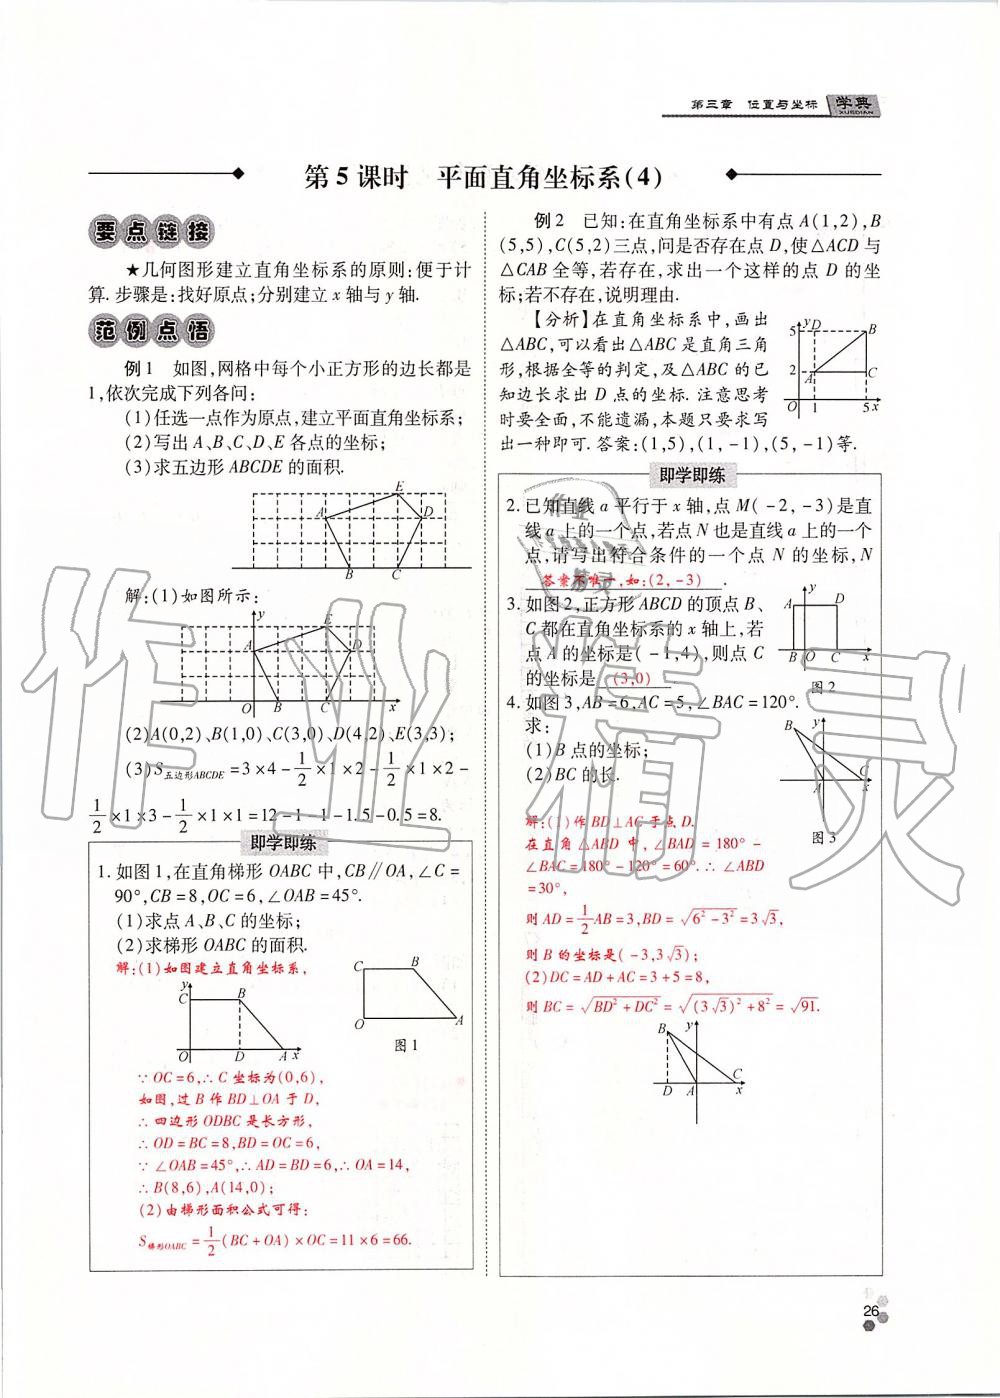 第三章 位置与坐标 学典
XUEDIAN
第5课时 平面直角坐标系(4)
要点链接
★几何图形建立直角坐标系的原则:便于计
算.步骤是:找好原点;分别建立x轴与y轴.
范例点悟
例1 如图,网格中每个小正方形的边长都是
1,依次完成下列各问:
(1)任选一点作为原点,建立平面直角坐标系;
(2)写出A、B、C、D、E各点的坐标;
(3)求五边形ABCDE的面积.
E
A D
B C
解:(1)如图所示:
y
E
A D
O B C x
(2)A(0,2)、B(1,0)、C(3,0)、D(4,2)、E(3,3);
(3)S五边形ABCDE=3×4-1/2×1×2-1/2×1×2-
1/2×1×3-1/2×1×1=12-1-1-1.5-0.5=8.
即学即练
1.如图1,在直角梯形OABC中,CB∥OA,∠C=
90°,CB=8,OC=6,∠OAB=45°.
(1)求点A、B、C的坐标;
(2)求梯形OABC的面积.
解:(1)如图建立直角坐标系,
y
C B
O D A x
C B
O A
图1
∵OC=6,∴C坐标为(0,6),
如图,过B作BD⊥OA于D,
∴四边形ODBC是长方形,
∴OD=BC=8,BD=OC=6,
∵∠OAB=45°,∴AD=BD=6,∴OA=14,
∴B(8,6),A(14,0);
(2)由梯形面积公式可得:
S梯形OABC=1/2(BC+OA)×OC=11×6=66.
例2 已知:在直角坐标系中有点A(1,2),B
(5,5),C(5,2)三点,问是否存在点D,使△ACD与
△CAB全等,若存在,求出一个这样的点D的坐
标;若不存在,说明理由.
【分析】在直角坐标系中,画出
△ABC,可以看出△ABC是直角三角
形,根据全等的判定,及△ABC的已
知边长求出D点的坐标.注意思考
时要全面,不能遗漏,本题只要求写
出一种即可.答案:(1,5),(1,-1),(5,-1)等.
y
5 D B
2 A C
O 1 5 x
即学即练
2.已知直线a平行于x轴,点M(-2,-3)是直
线a上的一个点,若点N也是直线a上的一个
点,请写出符合条件的一个点N的坐标,N
答案不唯一,如:(2,-3).
3.如图2,正方形ABCD的顶点B、
C都在直角坐标系的x轴上,若
点A的坐标是(-1,4),则点C
的坐标是(3,0).
y
A D
B O C x
图2
4.如图3,AB=6,AC=5,∠BAC=120°.
求:
(1)B点的坐标;
(2)BC的长.
y
B
C
A x
图3
解:(1)作BD⊥AC于点D.
在直角△ABD中,∠BAD=180°-
∠BAC=180°-120°=60°.∴∠ABD
=30°,
则AD=1/2AB=3,BD=√(6²-3²)=3√3,
则B的坐标是(-3,3√3);
(2)DC=AD+AC=3+5=8,
则BC=√(BD²+DC²)=√((3√3)²+8²)=√91.
y
B
C
D A x
26
作业精灵